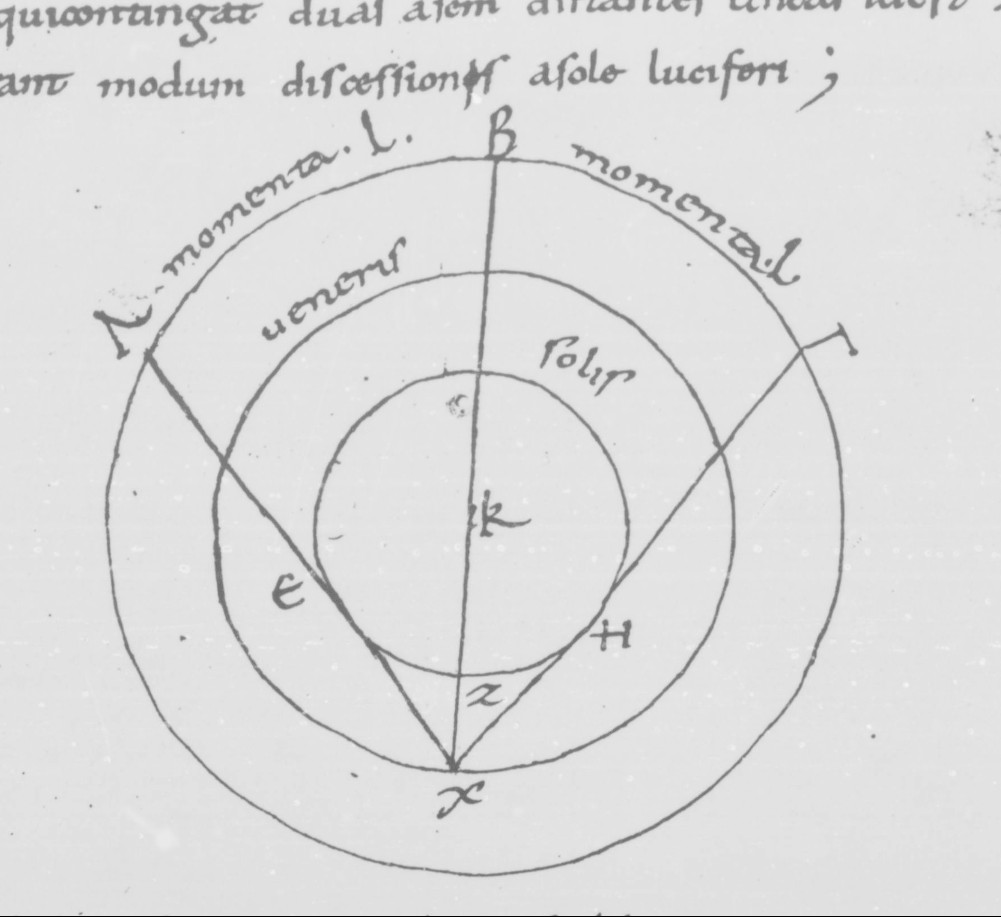 quicontingat duas
ant modum discessionis asole luciferi ;
momenta . L . B momenta . L
Λ Γ
ueneris
solis
k
E
H
Z
X